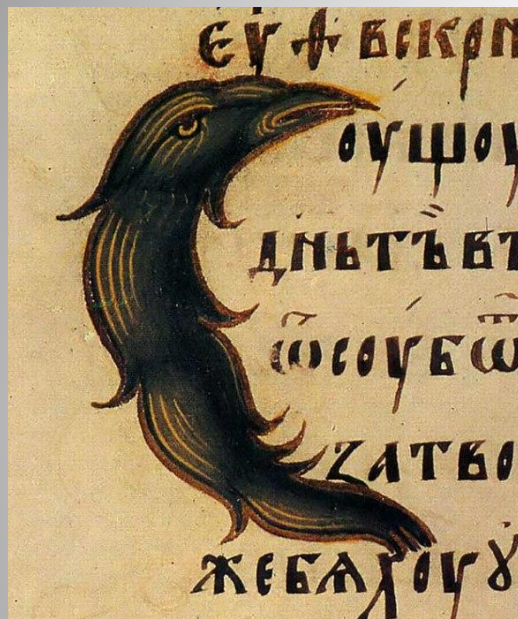 еу вскрн
Соушоу
дньтъвъ
ѿсоубѿ
затво
жебѧхоуꙋ